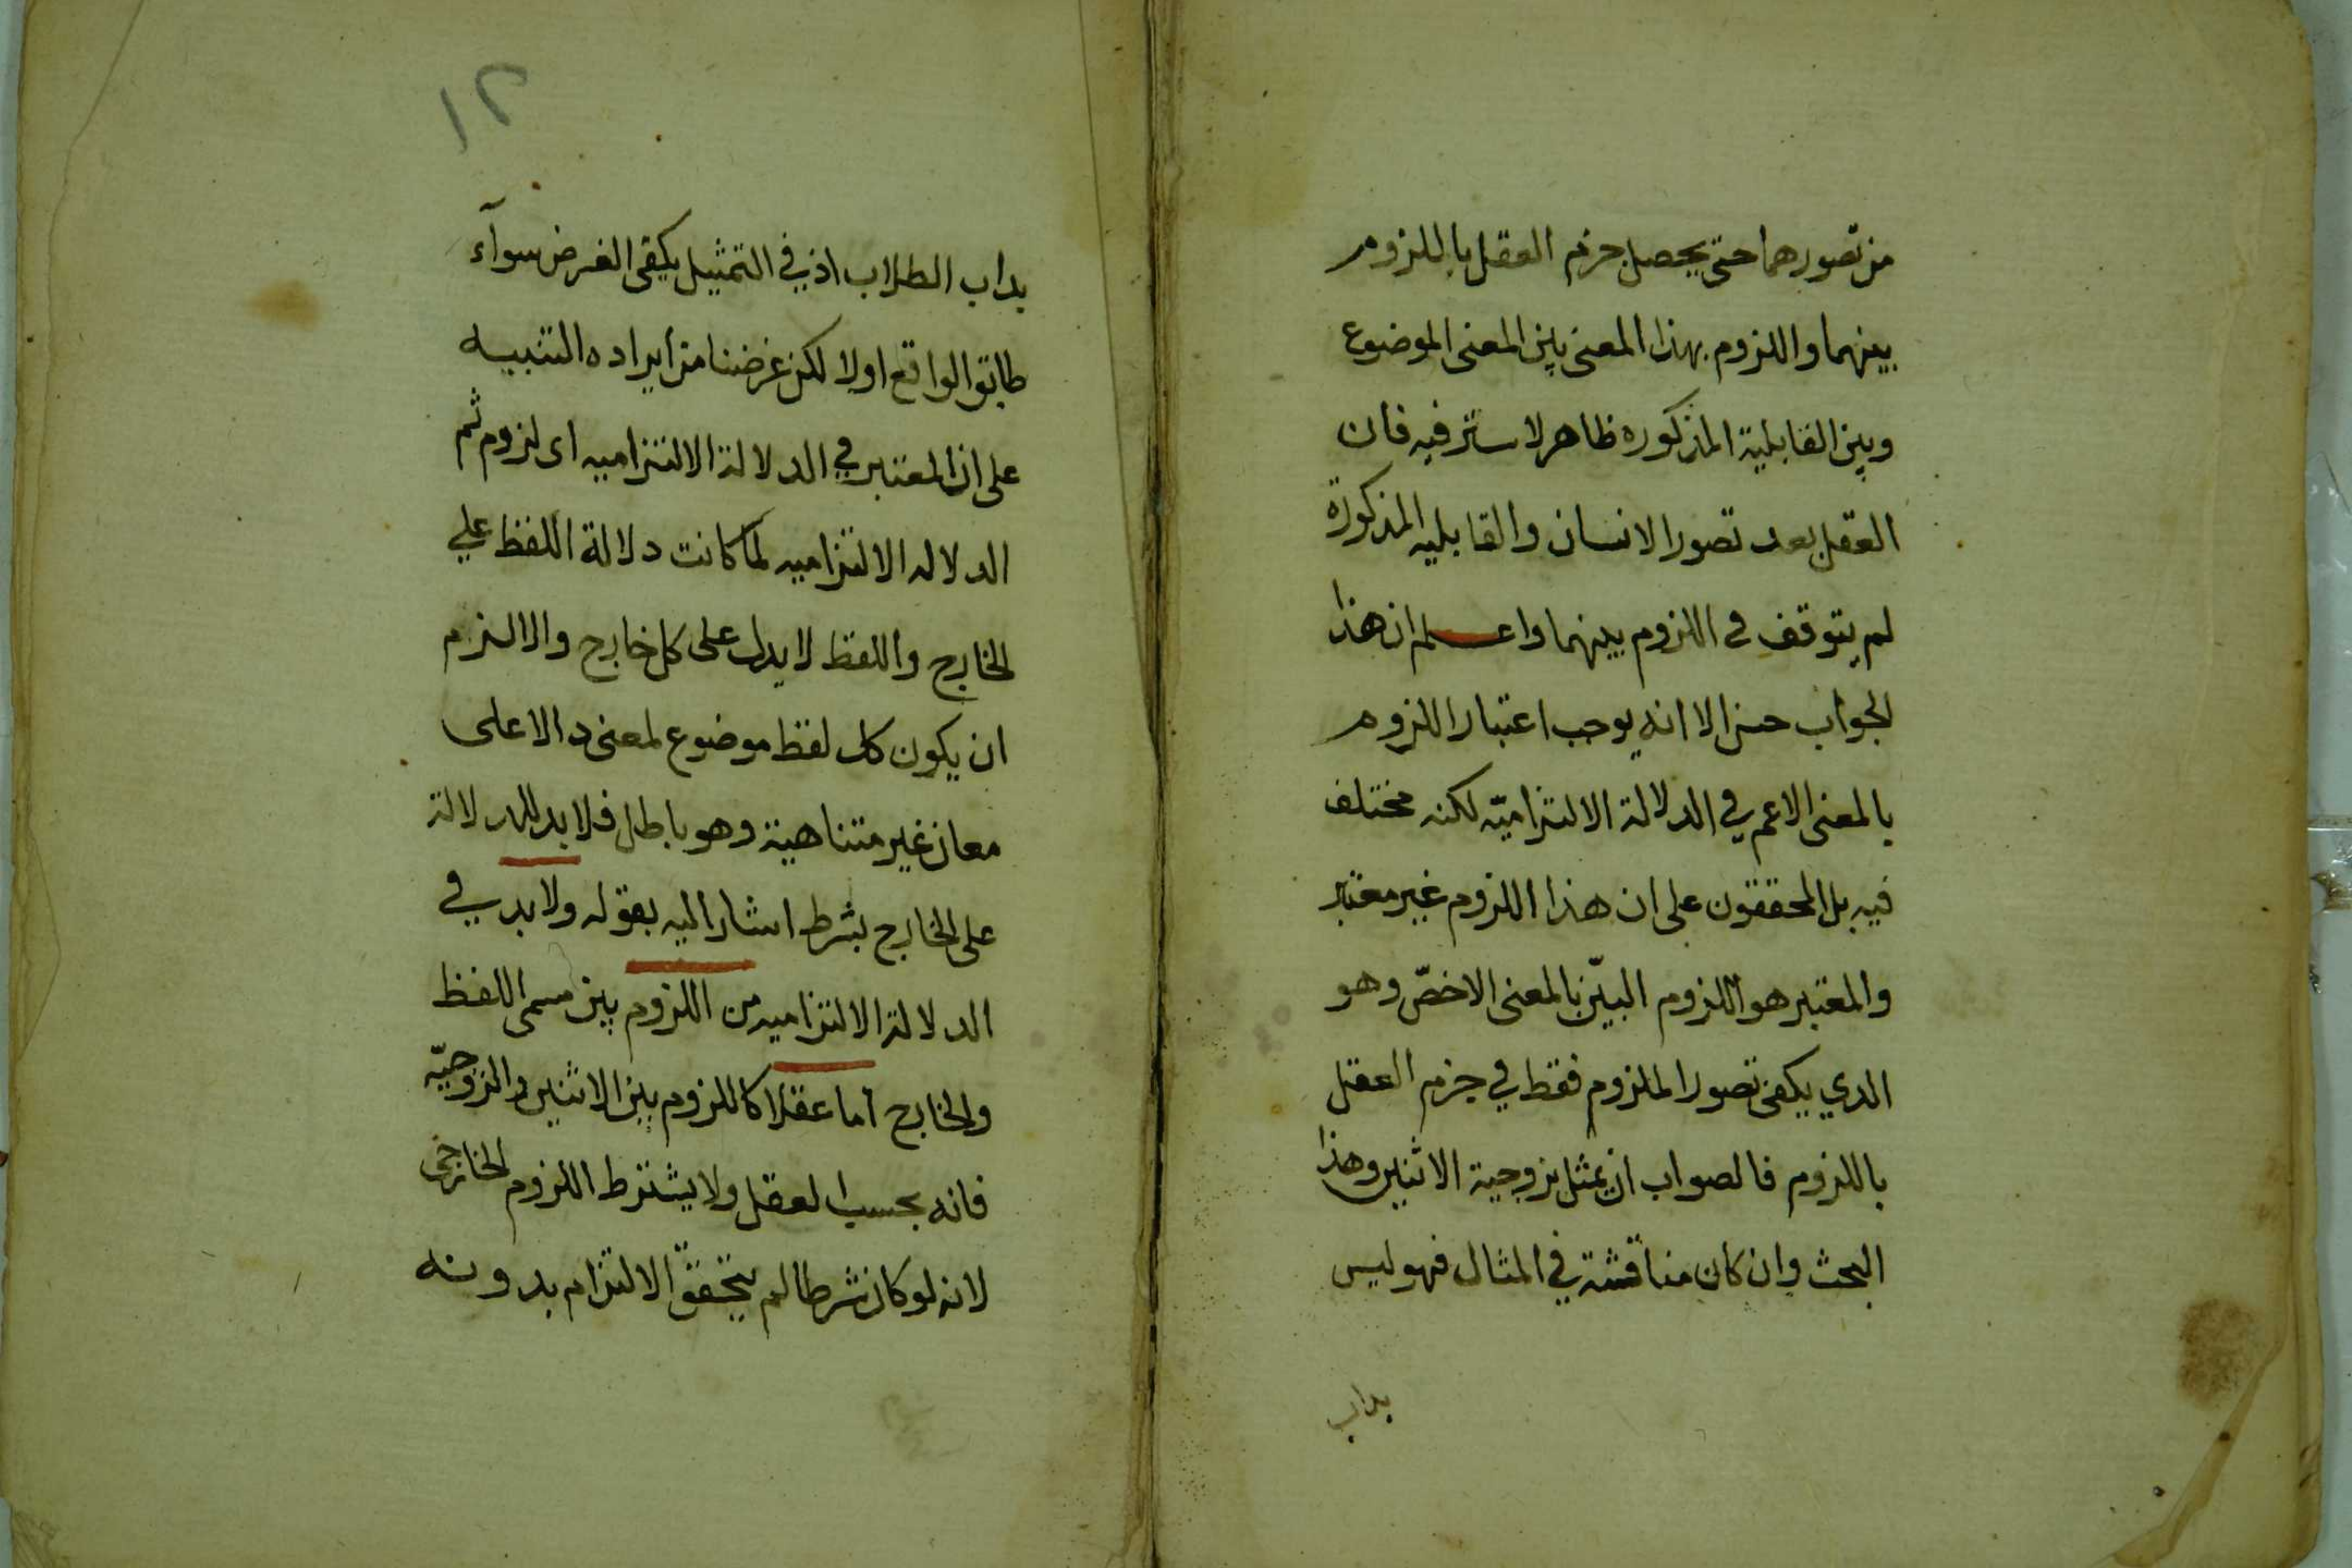 من تصورهما حتى يحصل جزم العقل باللزوم
بينهما واللزوم بهذا المعنى بين المعنى الموضوع
وبين القابلية المذكوره ظاهر لا ستر فيه فان
العقل بعد تصور الانسان والقابليه المذكورة
لم يتوقف فى اللزوم بينهما واعلم ان هذا
الجواب حسن الا انه يوجب اعتبار اللزوم
بالمعنى الاعم في الدلالة الالتزاميّه لكنه مختلف
فيه بل المحققون على ان هذا اللزوم غير معتبر
والمعتبر هو اللزوم البيّن بالمعنى الاخصّ وهو
الدي يكفى تصور الملزوم فقط في جزم العقل
باللزوم فالصواب ان يمثل بزوجية الاثنين وهذا
البحث وان كان مناقشة في المثال فهو ليس
بداب
١٢
بداب الطلاب اذ في التمثيل يكفى الفرض سوآء
طابق الواقع اولا لكن غرضنا من ايراده التنبيه
على ان المعتبر في الدلالة الالتزاميه اى لزوم ثم
الدلاله الالتزاميه لما كانت دلالة اللفظ علي
الخارج واللفظ لا يدل على كل خارج والا لزم
ان يكون كل لفظ موضوع لمعنى دالا على
معان غير متناهية وهو باطل فلا بد للدلالة
على الخارج بشرط اشار اليه بقوله ولا بد في
الدلالة الالتزاميه من اللزوم بين مسمى اللفظ
والخارج اما عقلا كاللزوم بين الاثنين والزوجيّه
فانه بحسب العقل ولا يشترط اللزوم الخارجى
لانه لو كان شرطا لم يتحقق الالتزام بدونه